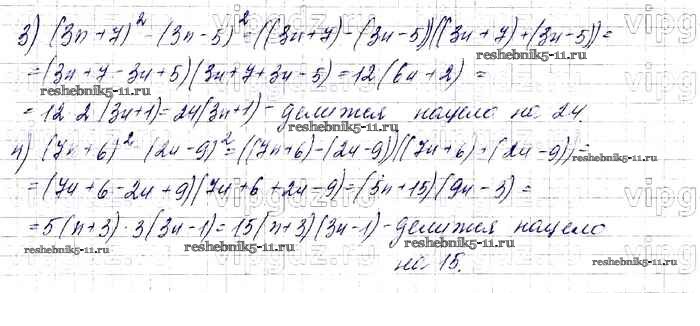 3) (3n+7)² - (3n-5)² = ((3n+7)-(3n-5))((3n+7)+(3n-5))=
=(3n+7-3n+5)(3n+7+3n-5)=12(6n+2) =
reshebnik5-11.ru
reshebnik5-11.ru
= 12·2(3n+1)=24(3n+1) - делится нацело на 24.
reshebnik5-11.ru
reshebnik5-11.ru
4) (7n+6)² - (2n-9)² = ((7n+6)-(2n-9))((7n+6)+(2n-9))=
=(7n+6-2n+9)(7n+6+2n-9)=(5n+15)(9n-3)=
=5(n+3)·3(3n-1)=15(n+3)(3n-1) - делится нацело
reshebnik5-11.ru
reshebnik5-11.ru
на 15.
reshebnik5-11.ru
vipgdz.ru